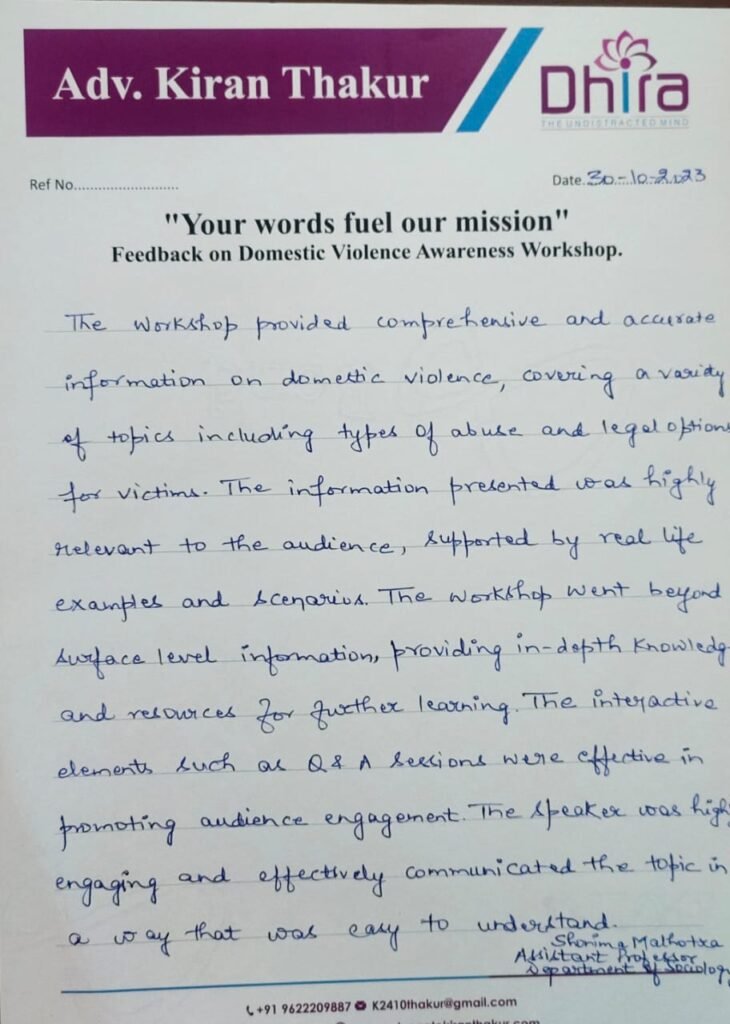 Adv. Kiran Thakur
Dhira
THE UNDISTRACTED MIND
Ref No..........................
Date.30-10-2023
"Your words fuel our mission"
Feedback on Domestic Violence Awareness Workshop.
The workshop provided comprehensive and accurate
information on domestic violence, covering a variety
of topics including types of abuse and legal options
for victims. The information presented was highly
relevant to the audience, supported by real life
examples and scenarios. The workshop went beyond
surface level information, providing in-depth knowledg
and resources for further learning. The interactive
elements such as Q & A sessions were effective in
promoting audience engagement. The speaker was high
engaging and effectively communicated the topic in
a way that was easy to understand.
Shorima Malhotra
Assistant Professor
Department of Sociology
+91 9622209887 K2410thakur@gmail.com